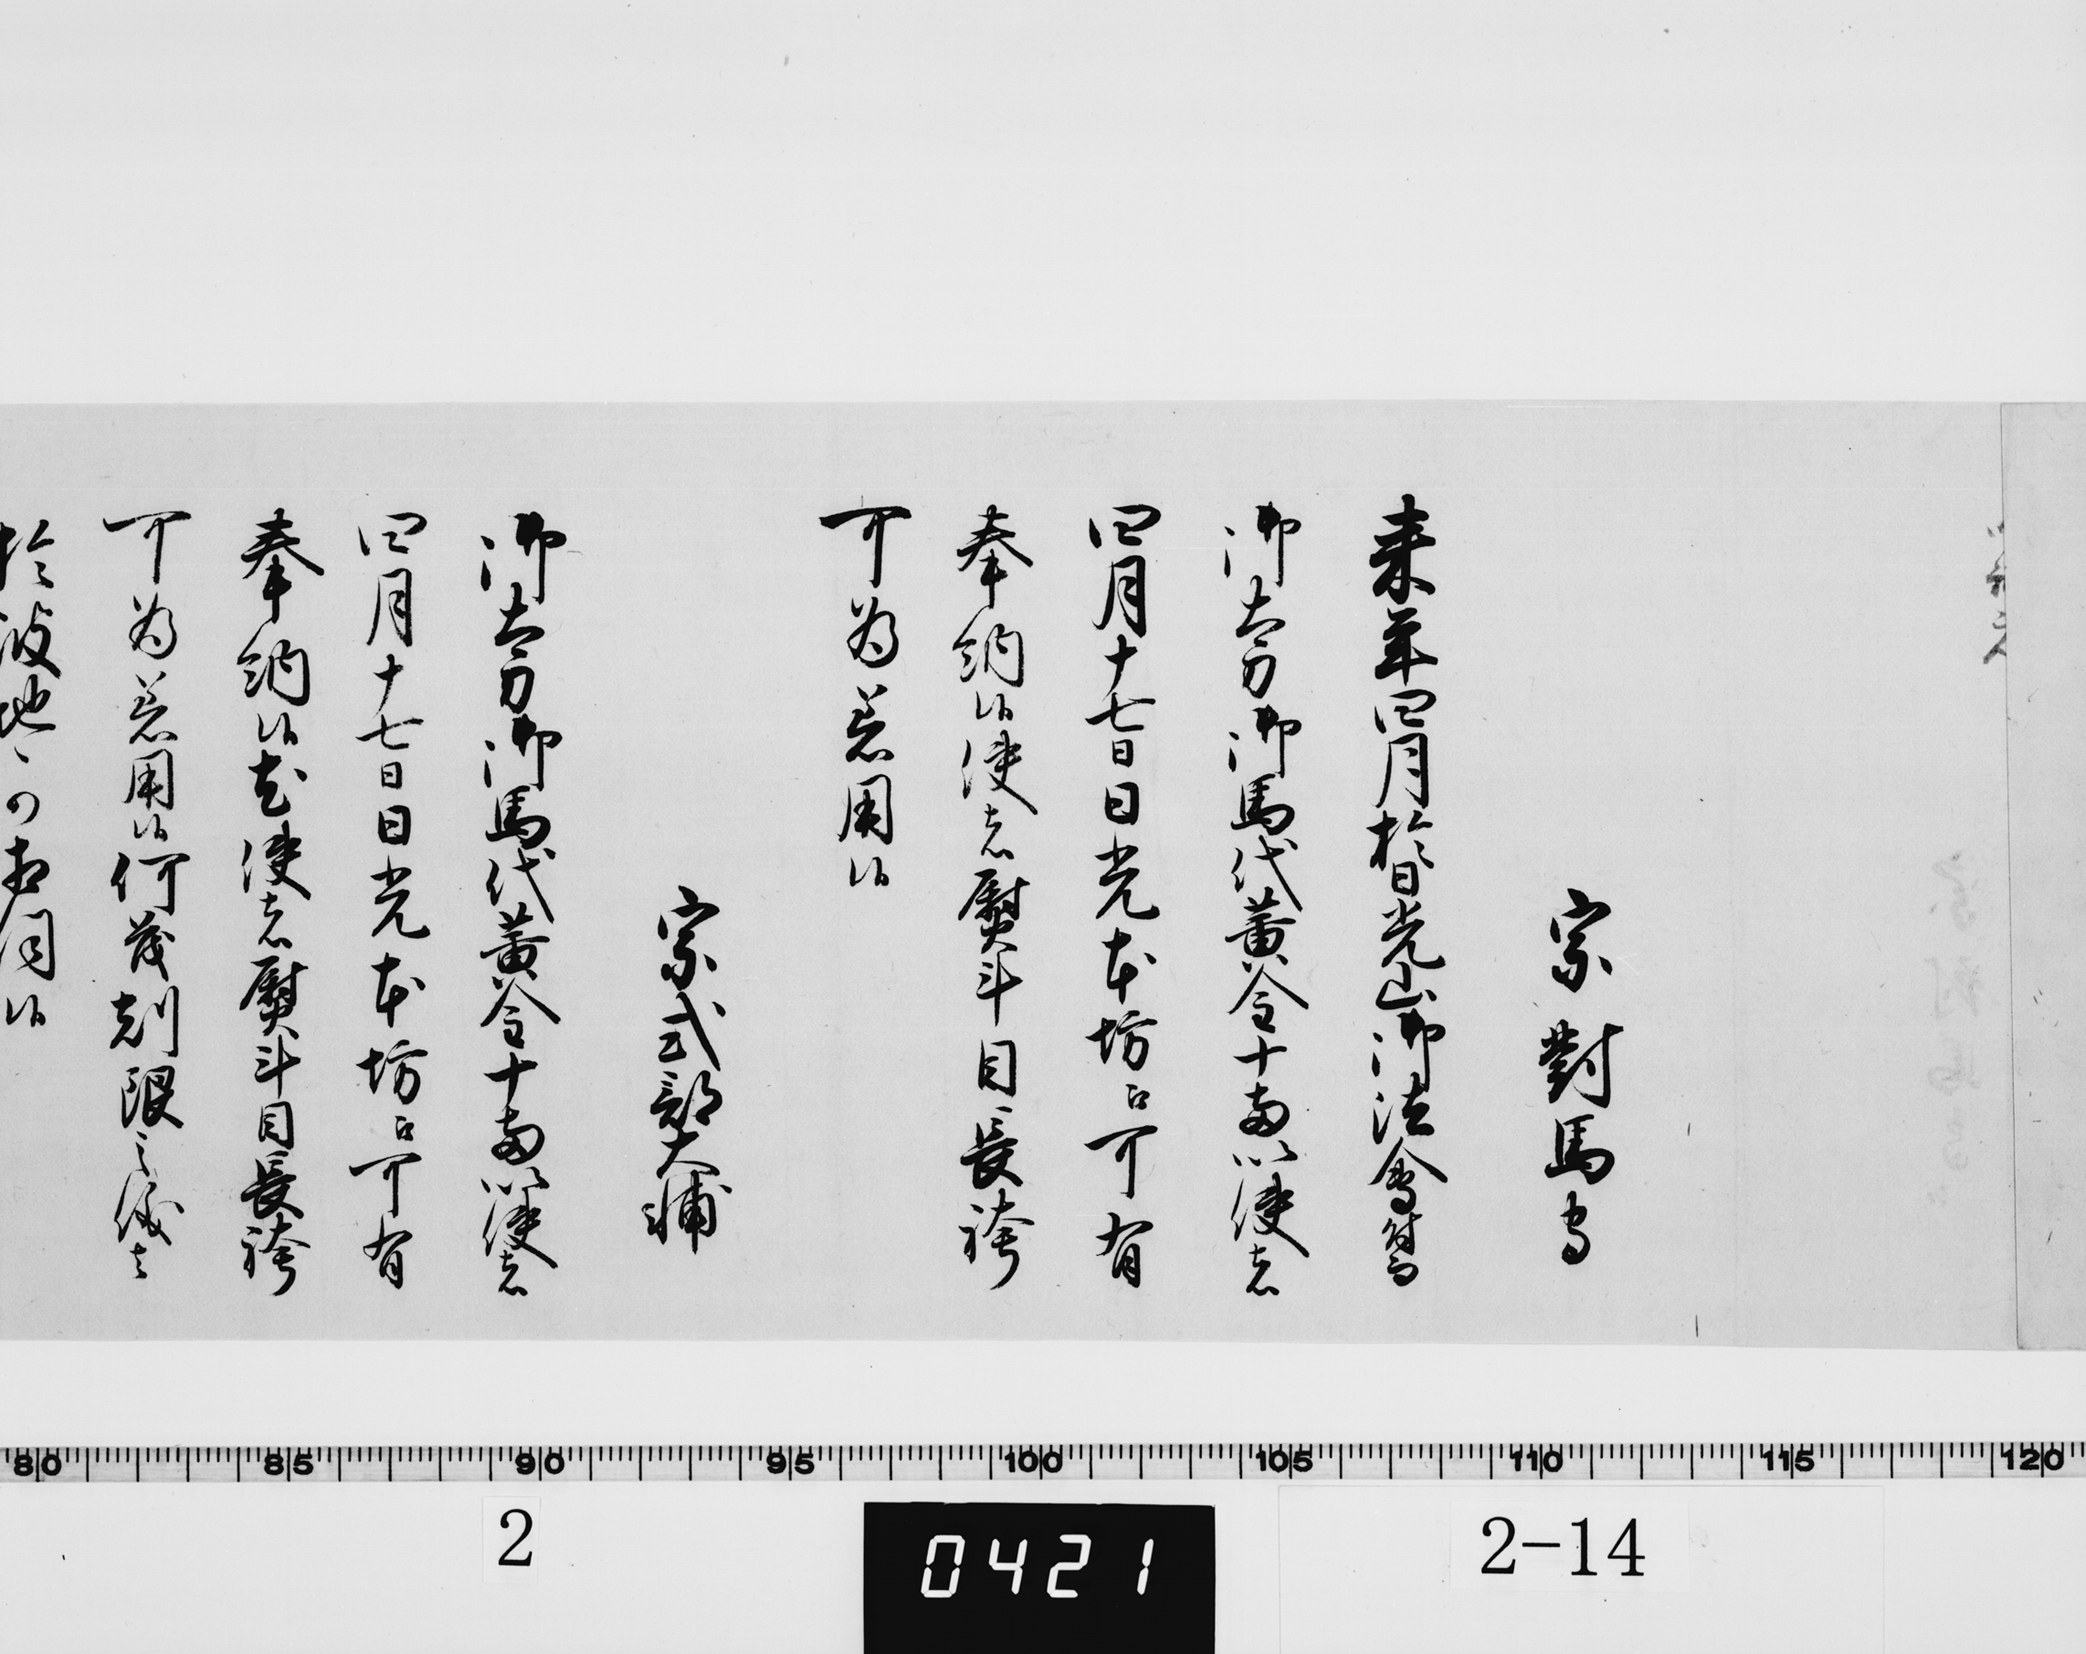 宗對馬守
来年四月於日光山御法會ニ付而
御太刀御馬代黄金十両以使者
四月十七日日光本坊ニ可有
奉納候使者熨斗目長袴
可為着用候
宗式部大輔
御太刀御馬代黄金十両以使者
四月十七日日光本坊ニ可有
奉納候尤使者熨斗目長袴
可為着用候何茂刻限之儀者
於彼地可相伺候
80 85 90 95 100 105 110 115 120
2
0421
2-14